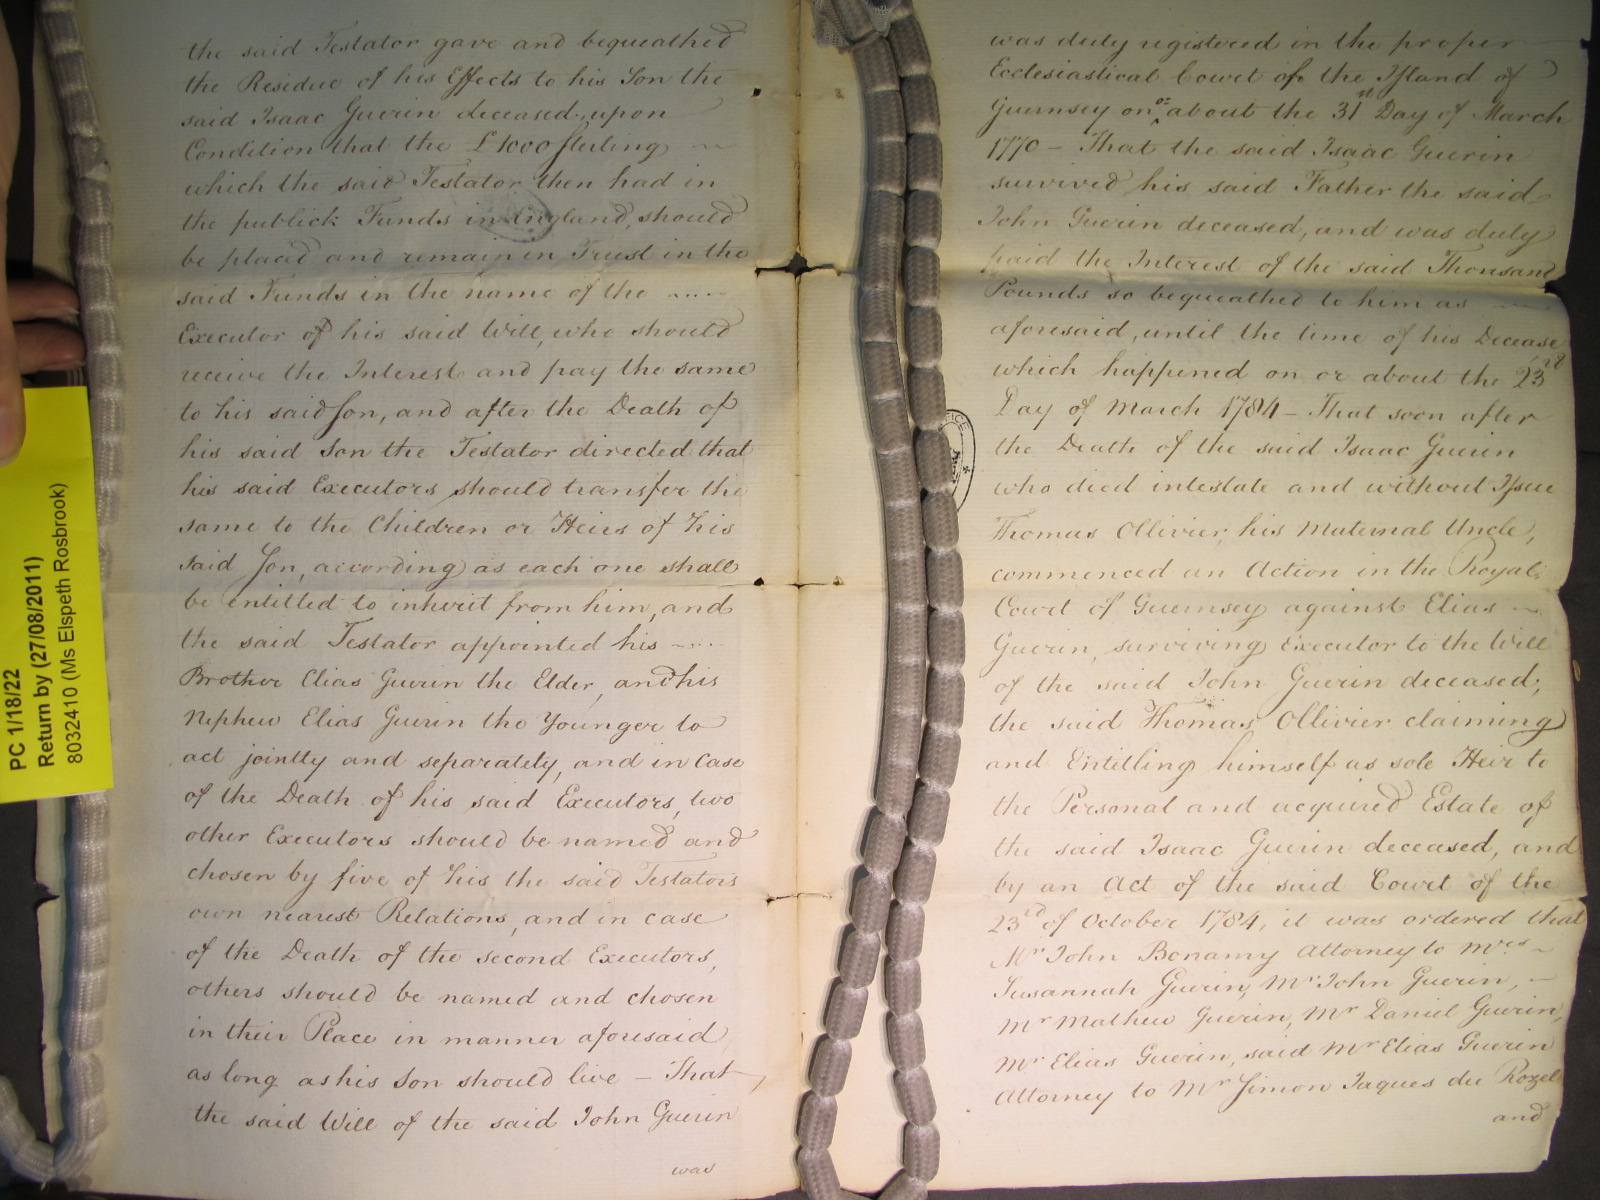 the said Testator gave and bequeathed
the Residue of his Effects to his Son the
said Isaac Guerin deceased, upon
Condition that the £1000 sterling
which the said Testator then had in
the publick Funds in England, should
be placed and remain in Trust in the
said Funds in the name of the ....
Executor of his said Will, who should
receive the Interest and pay the same
to his said Son, and after the Death of
his said Son the Testator directed that
his said Executors should transfer the
same to the Children or Heirs of his
said Son, according as each one shall
be entitled to inherit from him, and
the said Testator appointed his ....
Brother Elias Guerin the Elder, and his
Nephew Elias Guerin the Younger to
act jointly and separately, and in Case
of the Death of his said Executors, two
other Executors should be named and
chosen by five of his the said Testators
own nearest Relations, and in case
of the Death of the second Executors,
others should be named and chosen
in their Place in manner aforesaid
as long as his Son should live – That,
the said Will of the said John Guerin
was
was duly registered in the proper
Ecclesiastical Court of the Island of
Guernsey on or about the 31st Day of March
1770 – That the said Isaac Guerin
survived his said Father the said
John Guerin deceased, and was duly
paid the Interest of the said Thousand
Pounds so bequeathed to him as
aforesaid, until the time of his Decease
which happened on or about the 23rd
Day of March 1784 – That soon after
the Death of the said Isaac Guerin
who died intestate and without Issue
Thomas Ollivier, his Maternal Uncle,
commenced an Action in the Royal
Court of Guernsey against Elias
Guerin, surviving Executor to the Will
of the said John Guerin deceased;
the said Thomas Ollivier claiming
and Entitling himself as sole Heir to
the Personal and acquired Estate of
the said Isaac Guerin deceased, and
by an Act of the said Court of the
23rd of October 1784, it was ordered that
Mr John Bonamy Attorney to Mres
Susannah Guerin, Mr John Guerin, –
Mr Mathew Guerin, Mr Daniel Guerin,
Mr Elias Guerin, said Mr Elias Guerin
Attorney to Mr Simon Jaques du Rozel
and
PC 1/18/22
Return by (27/08/2011)
8032410 (Ms Elspeth Rosbrook)